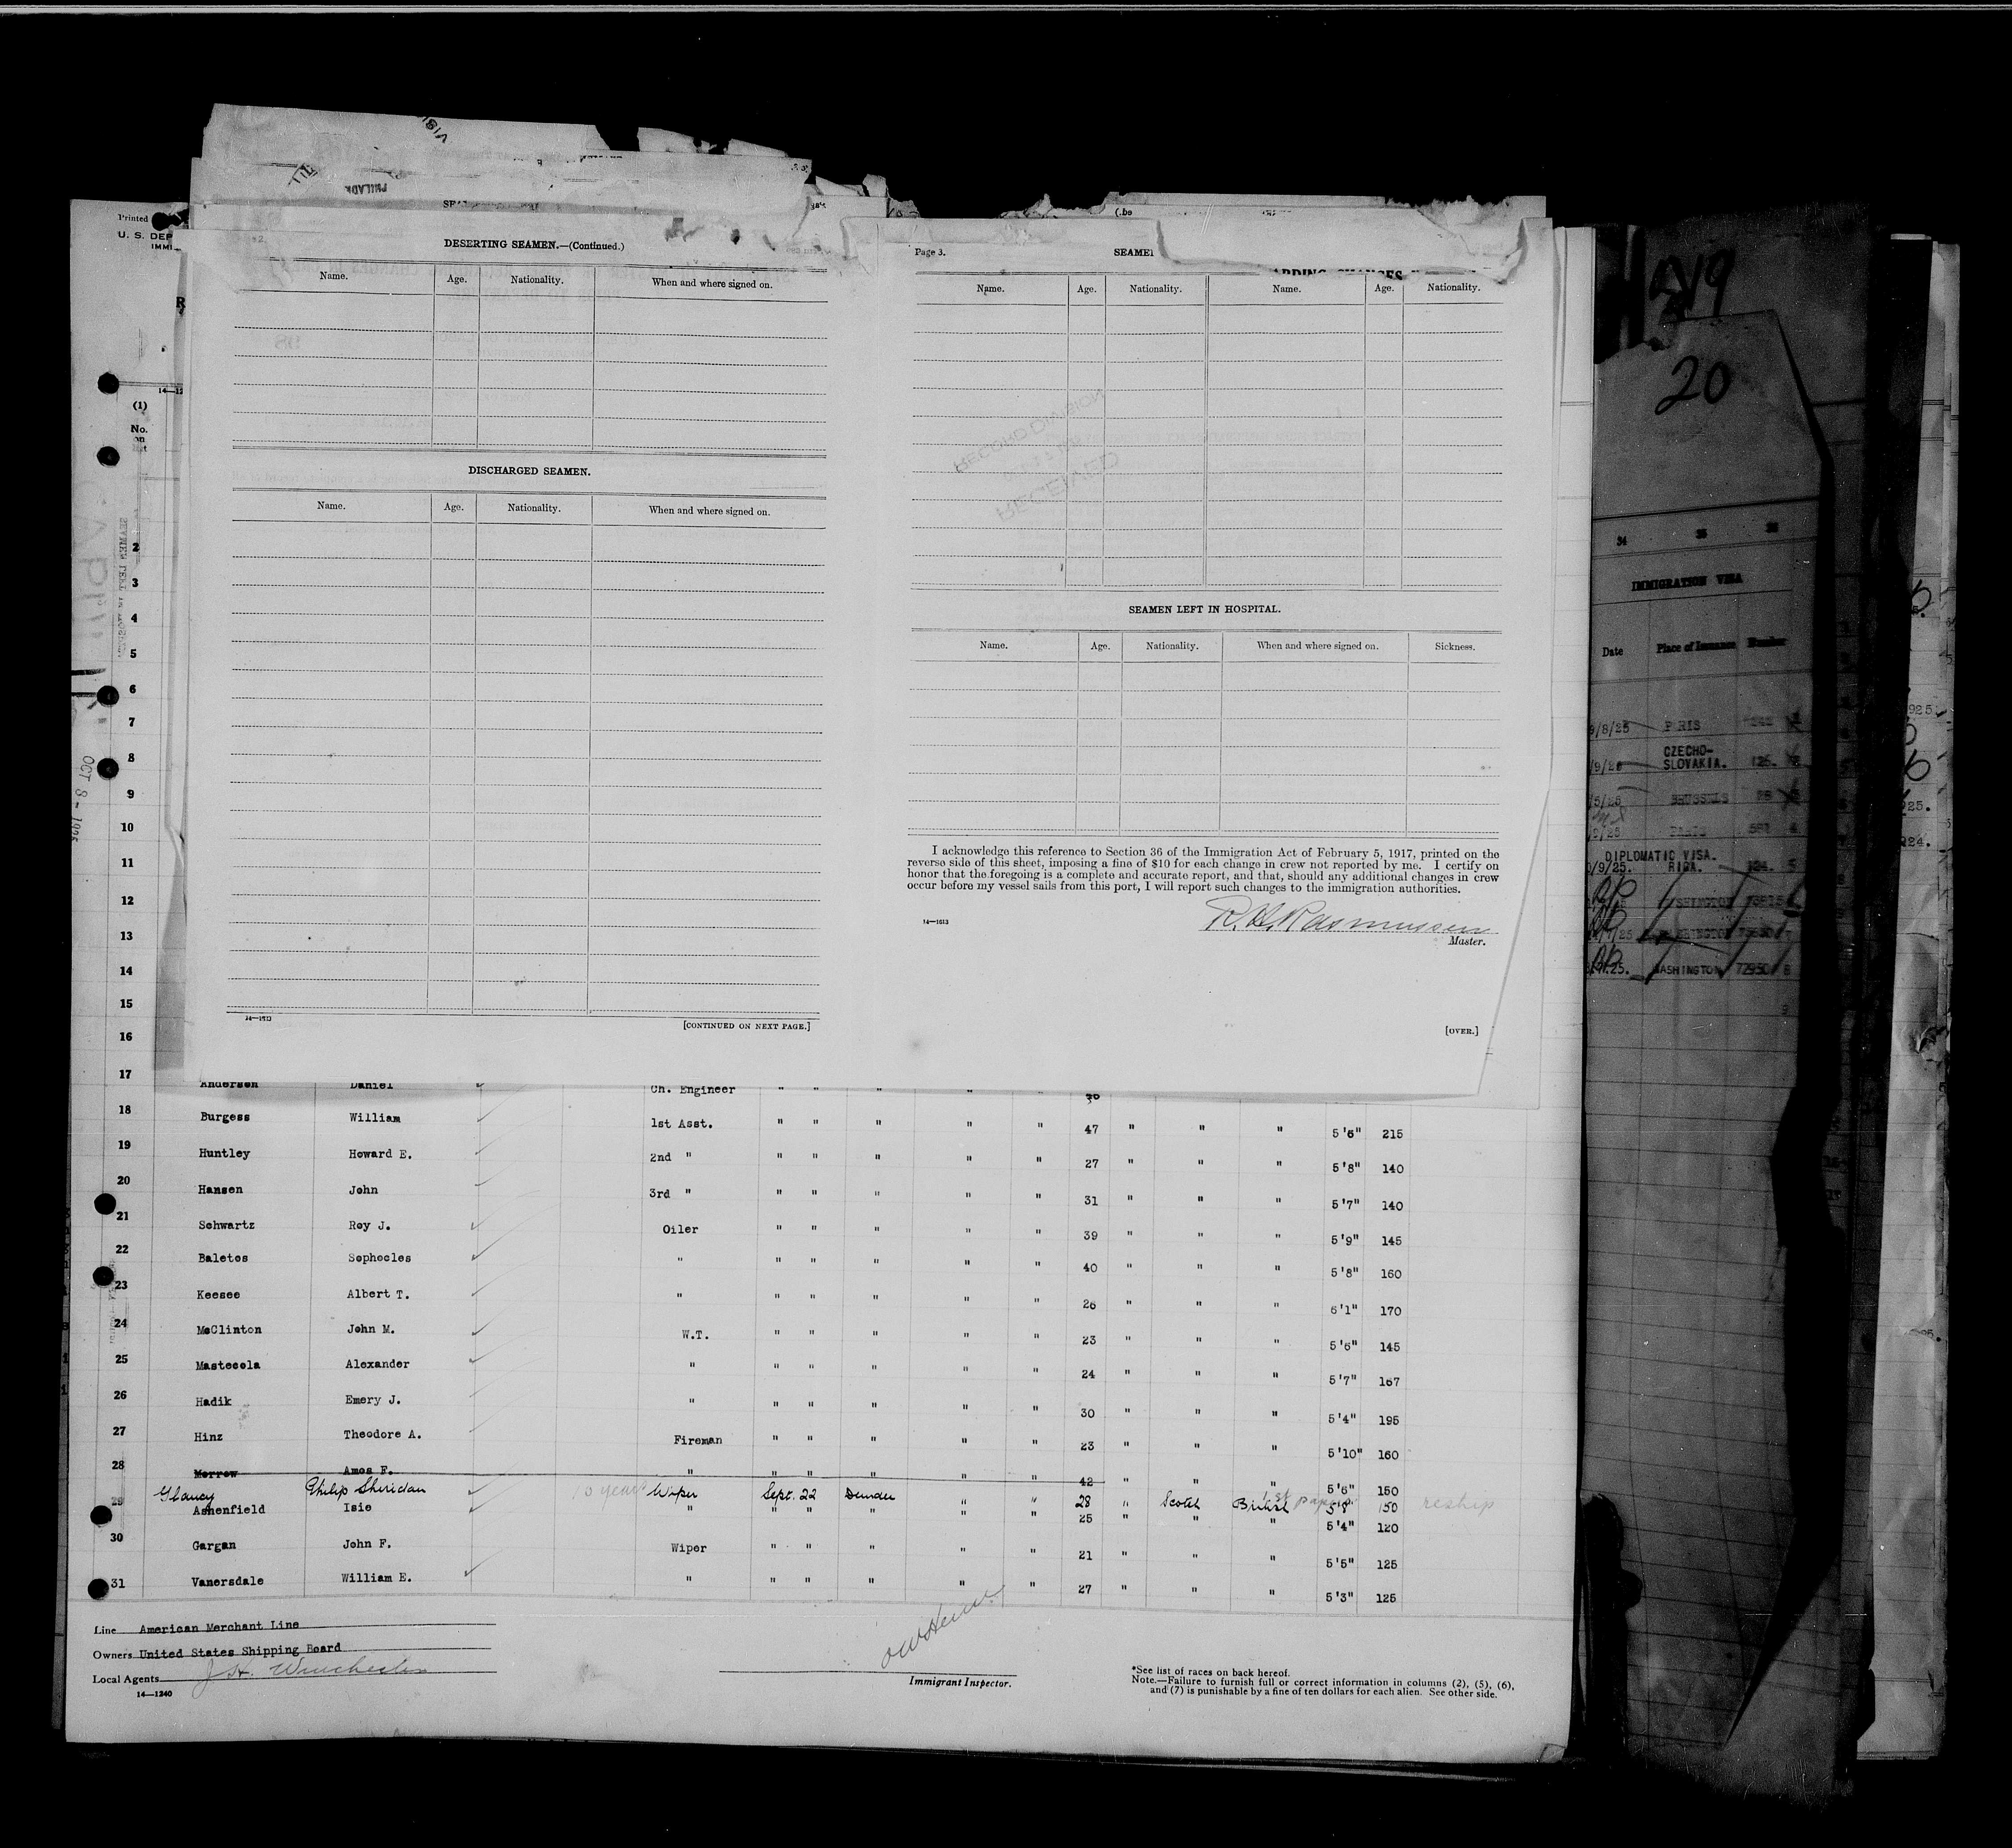 Printed
U. S. DEP
IMMI
14—12
(1)
No.
on
DESERTING SEAMEN.—(Continued.)
Name. Age. Nationality. When and where signed on.
DISCHARGED SEAMEN.
Name. Age. Nationality. When and where signed on.
14—1613
[CONTINUED ON NEXT PAGE.]
Page 3.
SEAMEN
Name. Age. Nationality. Name. Age. Nationality.
RECORD DIVISION
RECEIVED
SEAMEN LEFT IN HOSPITAL.
Name. Age. Nationality. When and where signed on. Sickness.
I acknowledge this reference to Section 36 of the Immigration Act of February 5, 1917, printed on the
reverse side of this sheet, imposing a fine of $10 for each change in crew not reported by me. I certify on
honor that the foregoing is a complete and accurate report, and that, should any additional changes in crew
occur before my vessel sails from this port, I will report such changes to the immigration authorities.
14—1613
R.H. Rasmussen
Master.
[OVER.]
OCT 8 - 1925
2
3
4
5
6
7
8
9
10
11
12
13
14
15
16
17 Anderson Daniel Ch. Engineer " " " " "
18 Burgess William 1st Asst. " " " " " 47 " " " 5'6" 215
19 Huntley Howard E. 2nd " " " " " " 27 " " " 5'8" 140
20 Hansen John 3rd " " " " " " 31 " " " 5'7" 140
21 Schwartz Roy J. Oiler " " " " " 39 " " " 5'9" 145
22 Baletos Sophocles " " " " " " 40 " " " 5'8" 160
23 Keesee Albert T. " " " " " " 26 " " " 6'1" 170
24 McClinton John M. W.T. " " " " " 23 " " " 5'6" 145
25 Mastecola Alexander " " " " " " 24 " " " 5'7" 167
26 Hadik Emery J. " " " " " " 30 " " " 5'4" 195
27 Hinz Theodore A. Fireman " " " " " 23 " " " 5'10" 160
28 Morrow Amos F. " " " " " " 42 " " " 5'6" 150
Glancy Philip Sheridan 10 years Wiper Sept. 22 Dundee " " 28 " Scotch British 1st papers 5'8 150 reship
29 Ashenfield Isie " " " " " " 25 " " " 5'4" 120
30 Gargan John F. Wiper " " " " " 21 " " " 5'5" 125
31 Vanersdale William E. " " " " " " 27 " " " 5'3" 125
Line American Merchant Line
Owners United States Shipping Board
Local Agents J.H. Winchester
14—1240
Immigrant Inspector.
*See list of races on back hereof.
Note.—Failure to furnish full or correct information in columns (2), (5), (6),
and (7) is punishable by a fine of ten dollars for each alien. See other side.
20
34 35 36
IMMIGRATION VISA
Date Place of Issuance Number
9/8/25 PARIS
CZECHO-
SLOVAKIA. 126.
BRUSSELS
PARIS 581 4
DIPLOMATIC VISA.
/9/25. RIGA. 124. 5
WASHINGTON
WASHINGTON
WASHINGTON 72950 8